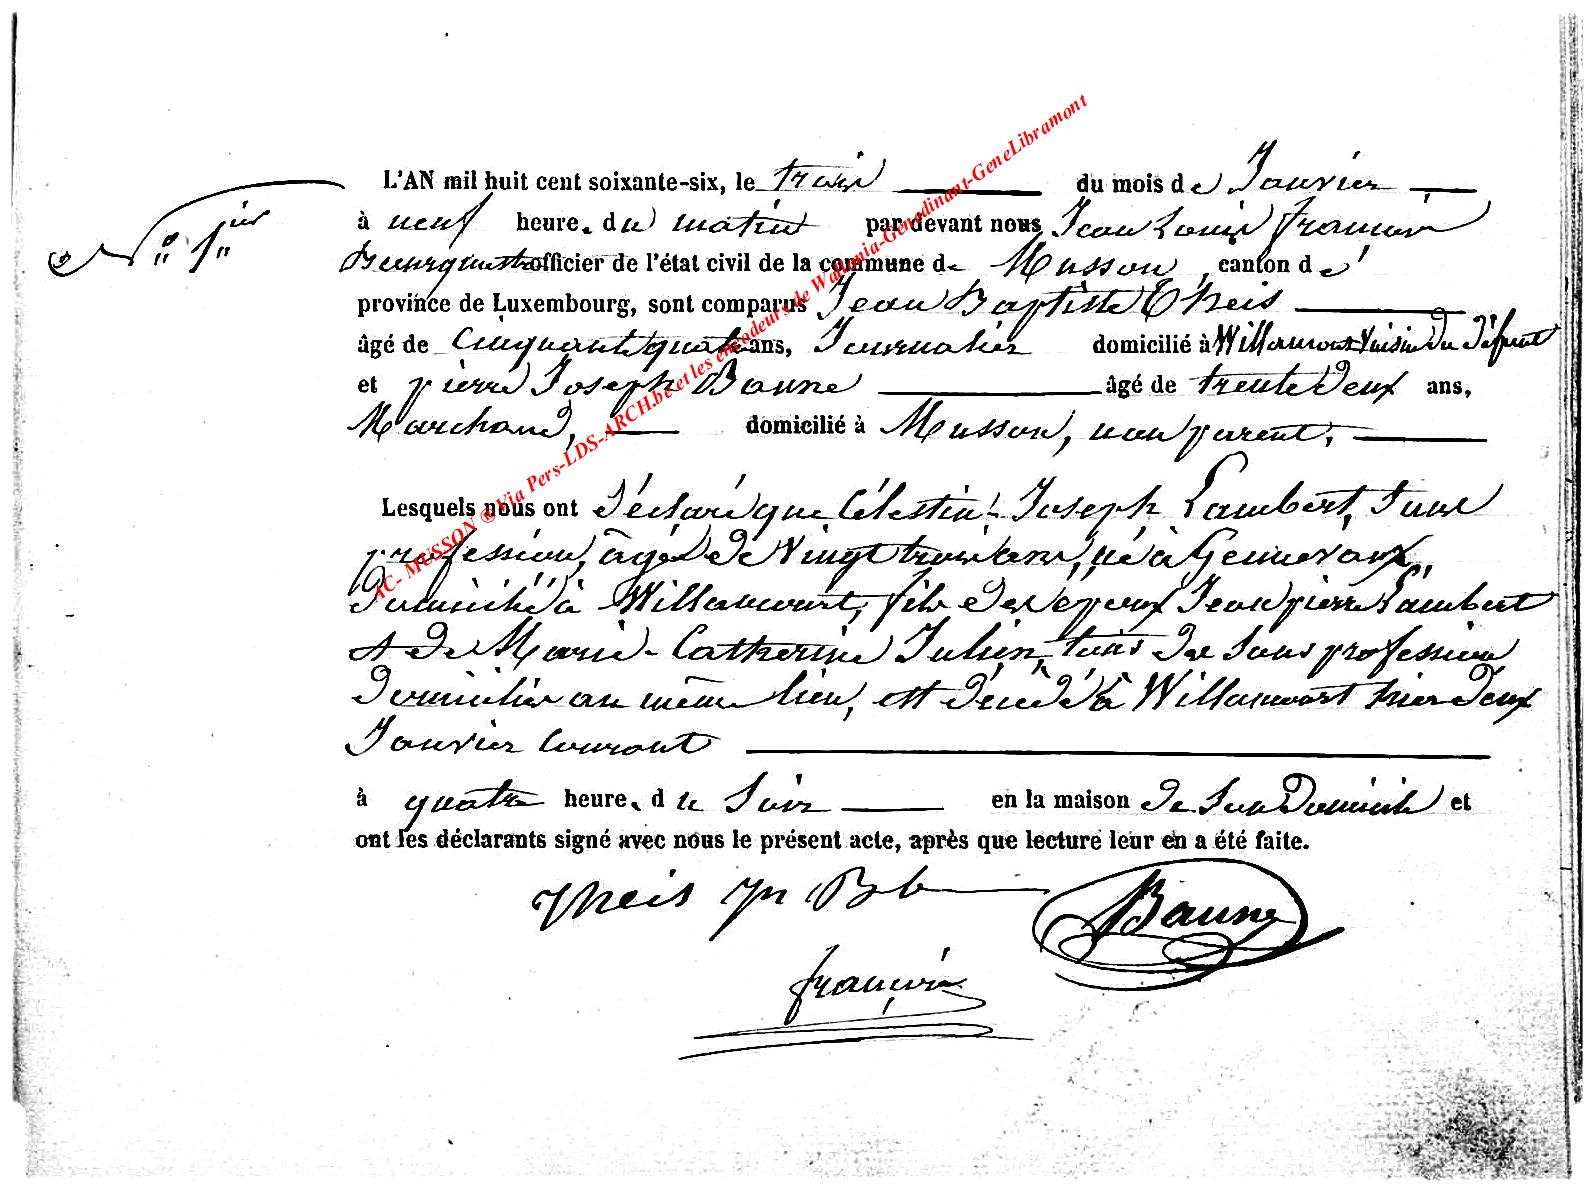 N° 1er
L'AN mil huit cent soixante-six, le trois du mois de Janvier
à neuf heures du matin par devant nous Jean Louis françois
Bourguemestre officier de l'état civil de la commune de Musson, canton de
province de Luxembourg, sont comparus Jean Baptiste Theis
âgé de Cinquante quatre ans, Journalier domicilié à Willancourt Voisin du Défunt
et pierre Joseph Baune âgé de trente deux ans,
Marchand, domicilié à Musson, non parent,
Lesquels nous ont Déclaré que Célestin-Joseph Lambert, Sans
profession, âgé de vingt trois ans, né à Gennevaux,
Domicilié à Willancourt, fils des époux Jean pierre Lambert
et de Marie-Catherine Julien, tous deux Sans profession
Domiciliés au même lieu, est décédé à Willancourt hier deux
Janvier Courant
à quatre heures du Soir en la maison de Son Domicile et
ont les déclarants signé avec nous le présent acte, après que lecture leur en a été faite.
Theis Jn Bte
Baune
françois
AC- MUSSON ® Via Pers-LDS-ARCH.be et les encodeurs de Wallonia-Genedinant-GeneLibramont